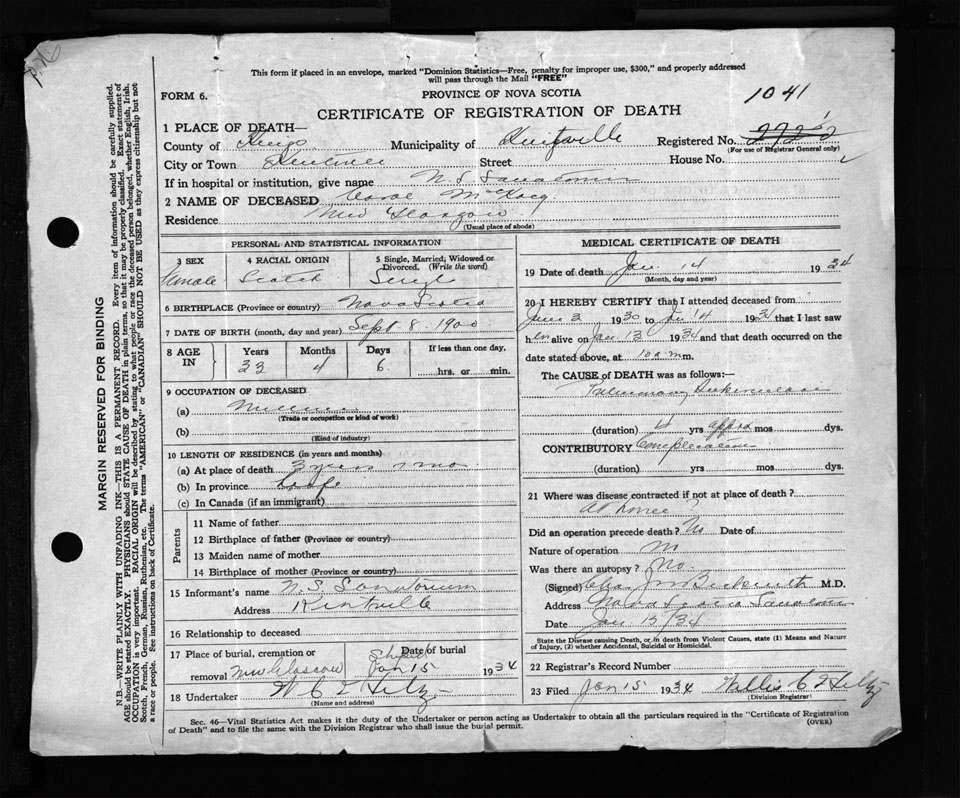 This form if placed in an envelope, marked "Dominion Statistics—Free, penalty for improper use, $300," and properly addressed
will pass through the Mail "FREE"
FORM 6. PROVINCE OF NOVA SCOTIA 1041
CERTIFICATE OF REGISTRATION OF DEATH
1 PLACE OF DEATH—
County of Kings Municipality of Kentville Registered No.
(For use of Registrar General only)
City or Town Kentville Street House No.
If in hospital or institution, give name N. S. Sanatorium
2 NAME OF DECEASED
Residence New Glasgow
(Usual place of abode)
PERSONAL AND STATISTICAL INFORMATION
3 SEX 4 RACIAL ORIGIN 5 Single, Married, Widowed or
Divorced. (Write the word)
female Scotch Single
6 BIRTHPLACE (Province or country) Nova Scotia
7 DATE OF BIRTH (month, day and year) Sept 8 1900
8 AGE IN Years Months Days If less than one day,
33 4 6 hrs. or min.
9 OCCUPATION OF DECEASED
(a)
(Trade or occupation or kind of work)
(b)
(Kind of industry)
10 LENGTH OF RESIDENCE (in years and months)
(a) At place of death 3 years 7 mo
(b) In province Life
(c) In Canada (if an immigrant)
Parents
11 Name of father
12 Birthplace of father (Province or country)
13 Maiden name of mother
14 Birthplace of mother (Province or country)
15 Informant's name N. S. Sanatorium
Address Kentville
16 Relationship to deceased
17 Place of burial, cremation or Date of burial
removal New Glasgow Jan 15 1934
18 Undertaker W C E Hiltz
(Name and address)
MEDICAL CERTIFICATE OF DEATH
19 Date of death Jan. 14 1934
(Month, day and year)
20 I HEREBY CERTIFY that I attended deceased from
June 3 1930 to Jan 14 193 that I last saw
her alive on Jan 13 1934 and that death occurred on the
date stated above, at 10 a.m.
The CAUSE of DEATH was as follows:—
Pulmonary Tuberculosis
(duration) 4 yrs approx mos dys.
CONTRIBUTORY
(duration) yrs mos dys.
21 Where was disease contracted if not at place of death?
At home?
Did an operation precede death? No Date of
Nature of operation No
Was there an autopsy? No.
(Signed) Beckwith M.D.
Address Nova Scotia Sanatorium
Date Jan 15/34
State the Disease causing Death, or in death from Violent Causes, state (1) Means and Nature
of Injury, (2) whether Accidental, Suicidal or Homicidal.
22 Registrar's Record Number
23 Filed Jan 15 1934 Willis C E Hiltz
Division Registrar
Sec. 46—Vital Statistics Act makes it the duty of the Undertaker or person acting as Undertaker to obtain all the particulars required in the "Certificate of Registration
of Death" and to file the same with the Division Registrar who shall issue the burial permit. (OVER)
MARGIN RESERVED FOR BINDING
N.B.—WRITE PLAINLY WITH UNFADING INK—THIS IS A PERMANENT RECORD. Every item of information should be carefully supplied.
AGE should be stated EXACTLY. PHYSICIANS should STATE CAUSE OF DEATH in plain terms, so that it may be properly classified. Exact statement of
OCCUPATION is very important. RACIAL ORIGIN will be described by stating to what people or race the deceased person belonged, whether English, Irish,
Scotch, French, German, Russian, Ruthenian, etc. The terms "AMERICAN" or "CANADIAN" SHOULD NOT BE USED as they express citizenship but not
a race or people. See instructions on back of Certificate.